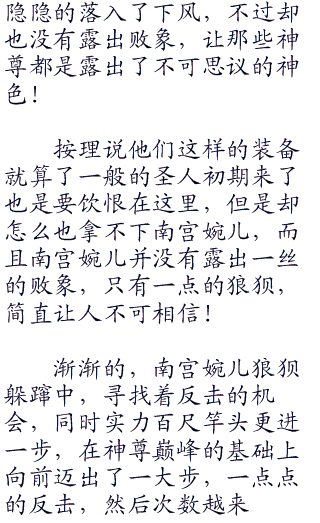 隐隐的落入了下风，不过却
也没有露出败象，让那些神
尊都是露出了不可思议的神
色！
按理说他们这样的装备
就算了一般的圣人初期来了
也是要饮恨在这里，但是却
怎么也拿不下南宫婉儿，而
且南宫婉儿并没有露出一丝
的败象，只有一点的狼狈，
简直让人不可相信！
渐渐的，南宫婉儿狼狈
躲蹿中，寻找着反击的机
会，同时实力百尺竿头更进
一步，在神尊巅峰的基础上
向前迈出了一大步，一点点
的反击，然后次数越来